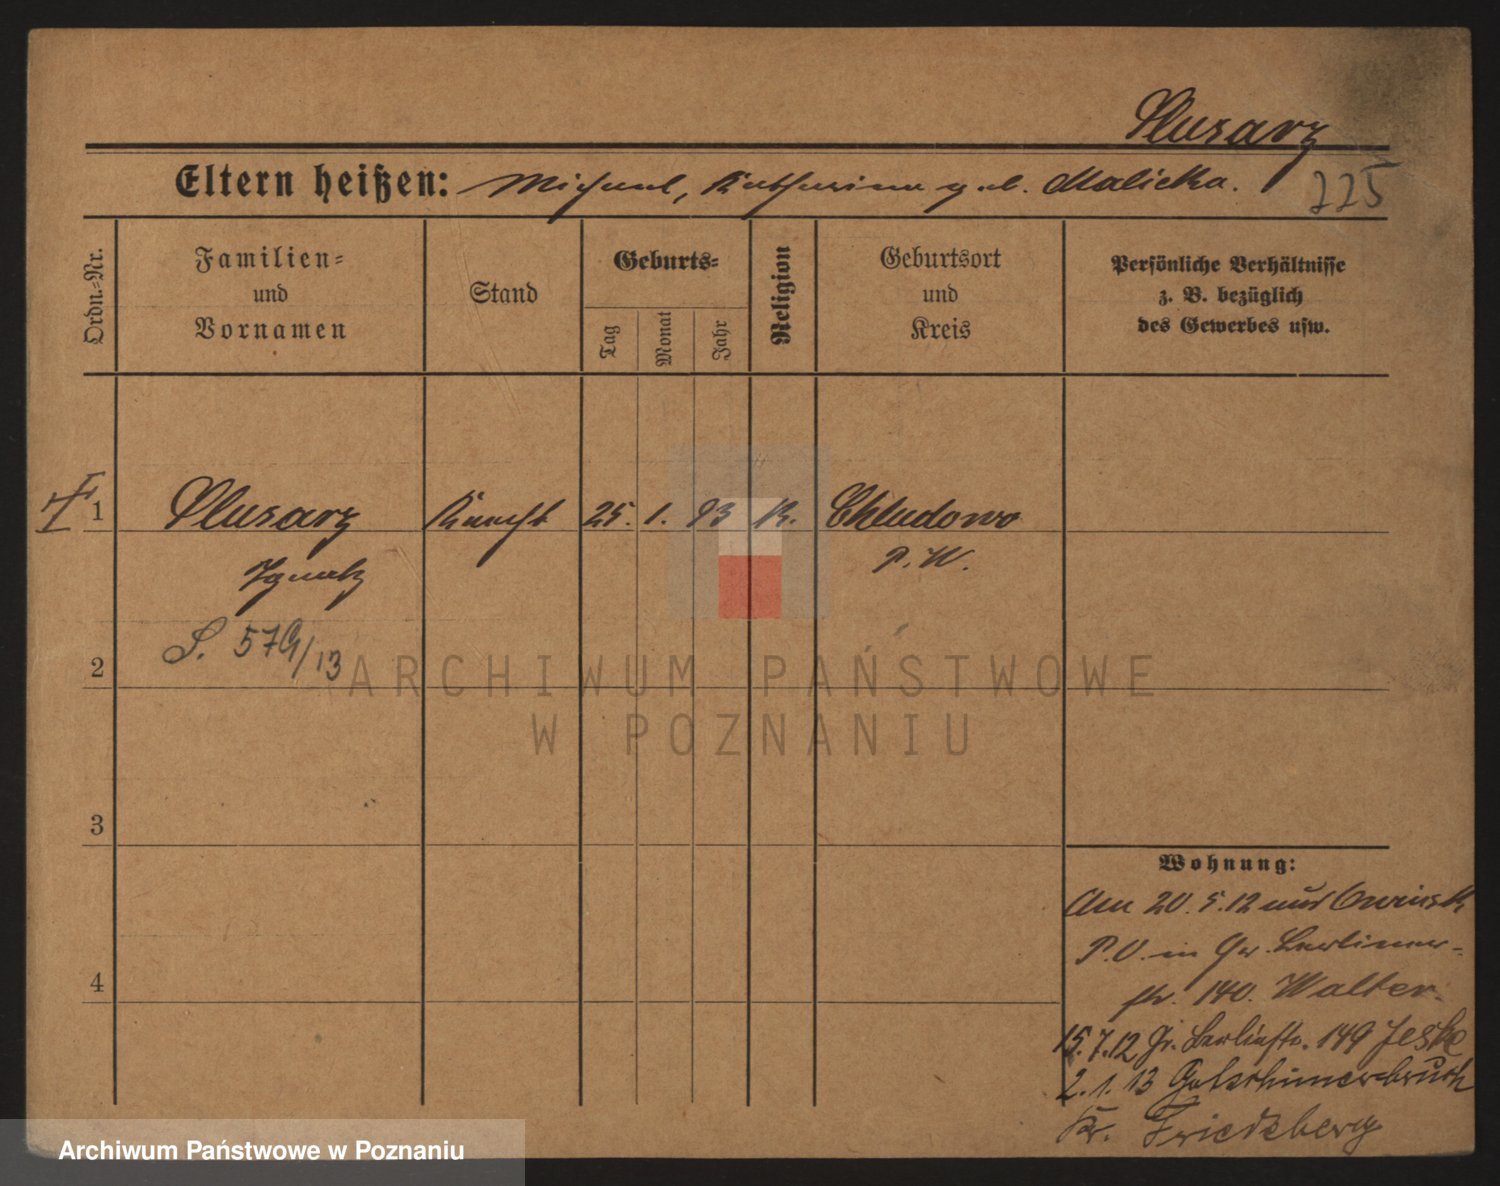 Slusarz
Eltern heißen: Michael, Katharina geb. Malicka.
225
Ordn.-Nr.
Familien-
und
Vornamen
Stand
Geburts-
Tag
Monat
Jahr
Religion
Geburtsort
und
Kreis
Persönliche Verhältnisse
z. B. bezüglich
des Gewerbes usw.
1 Slusarz Knecht 25. 1. 93 K. Chludowo
Ignatz P. W.
S. 579/13
2
ARCHIWUM PAŃSTWOWE
W POZNANIU
3
4
Wohnung:
Am 20. 5. 12 aus Owinsk
P. O. in Gr. Berliner-
str. 140. Walter.
15. 7. 12 Gr. Berlinstr. 149 Jeske
2. 1. 13
Kr. Friedeberg
Archiwum Państwowe w Poznaniu